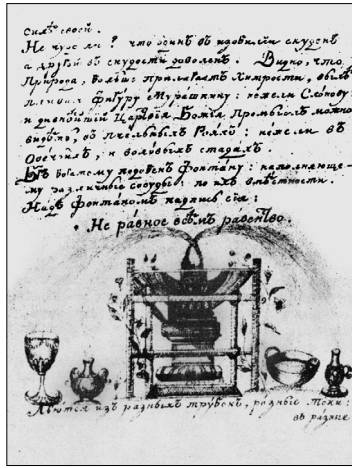 своей.
Не чудо ли? что одинъ въ изобиліи скуденъ,
а другій въ скудости доволенъ. Видно, что
Природа, болше прилагаетъ хитрости, вылѣ-
пливая Фигуру Мурашкину: нежели Слонову:
и дивнѣйшій Царствія Божія Промыслъ можно
видѣть, въ пчельныхъ Рояхъ: нежели въ
Овечихъ, и воловыхъ стадахъ.
Бгъ богатому подобенъ Фонтану: наполняюще-
му различные сосуды: по ихъ вмѣстности.
Надъ Фонтаномъ надпись сія:
Не равное всѣмъ равенство.
Льются изъ разныхъ трубокъ, разные токи:
въ разные